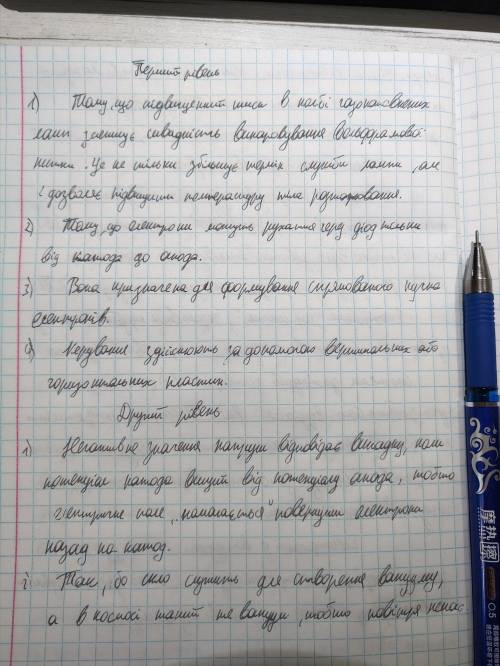 Перший рівень
1) Тому, що підвищений тиск в колбі газонаповнених
ламп зменшує швидкість випаровування вольфрамової
нитки. Це не тільки збільшує термін служби лампи, але
і дозволяє підвищити температуру тіла розжарювання.
2) Тому, що електрони можуть рухатися через діод тільки
від катода до анода.
3) Вона призначена для формування спрямованого пучка
електронів.
4) Керування здійснюють за допомогою вертикальних або
горизонтальних пластин.
Другий рівень
1) Негативне значення напруги відповідає випадку, коли
потенціал катода вищий від потенціалу анода, тобто
електричне поле „намагається" повернути електрони
назад на катод.
2) Так, бо скло служить для створення вакууму,
а в космосі такий же вакуум, тобто повітря немає
摩热擦
0.5